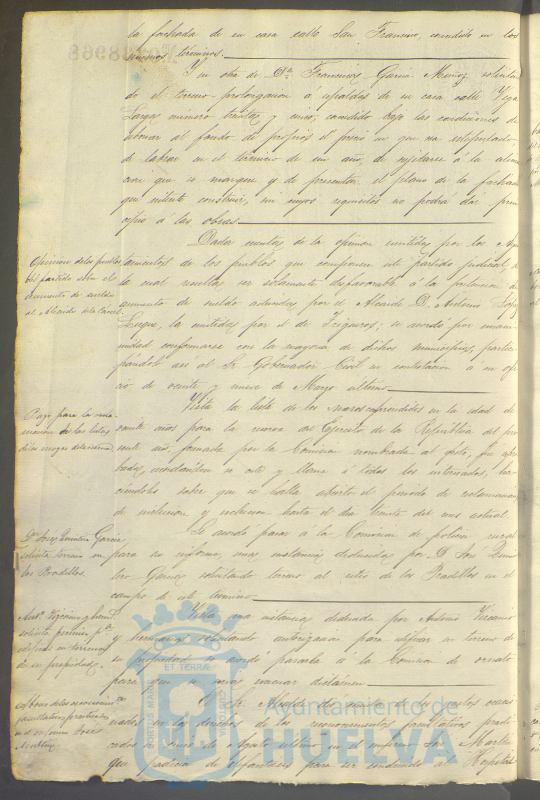 la fachada de su casa calle San Francisco, concedido en los
mismos términos.
Y en otra de Dª Francisca Garcia Muñoz solicitan
do el terreno prolongacion á espaldas de su casa calle Vega
Larga numero treinta y cinco; concedido bajo las condiciones de
abonar al fondo de propios el precio en que sea
de labrar en el termino de un año, de sujetarse á la alinea
cion que se marque y de presentar el plano de la fachada
que intente construir, sin cuyos requisitos no podrá dar prin
cipio á las obras.
Opinion de los pueblos
del partido sobre el
aumento de sueldo
al Alcaide de la Carcel.
Dada cuenta de la opinion emitida por los Ayun
tamientos de los pueblos que componen este partido judicial, de
la cual resulta ser solamente desfavorable á la peticion de
aumento de sueldo aducida por el Alcaide D. Antonio Lopez
Luque, la emitida por el de Trigueros; se acordó por unani
midad conformarse con la mayoria de dichos municipios, partici
pándolo asi al Sr. Gobernador Civil en contestacion á su ofi
cio de veinte y nueve de Marzo ultimo.
de las listas
Vista la lista de los mozos comprendidos en la edad de
veinte años para la reserva del Ejército de la República del pre
sente año, formada por la Comision nombrada al efecto, fué apro
bada, mandandose se cite y llame á todos los interesados, ha
ciéndoles saber que se halla abierto el periodo de reclamaciones
de inclusion y exclusion hasta el dia veinte del mes actual.
Dn José Quintero Garcia
solicita terreno en
los Pradillos.
Se acordó pasar á la Comision de policia rural
para su informe, una instancia deducida por D. José Quin
tero Gamez solicitando terreno al sitio de los Pradillos en el
campo de este termino.
Antº Vizcaino y hermº
solicita permiso pª
edificar en terrenos
de su propiedad.
Vista una instancia deducida por Antonio Vizcaino
y hermano solicitando autorizacion para edificar en terreno de
su propiedad se acordó pasarla á la Comision de ornato
para que se sirva evacuar dictámen.
Abono de los reconocimientos
facultativos practicados
El Sr. Alcalde dió cuenta de los gastos ocasio
nados en los derechos de los reconocimientos facultativos practi
cados en 	de Agosto último en el enfermo José Martin
que padecia de elefantiasis para ser conducido al Hospital
PORTUS MARIS
ET TERRÆ
CUSTODIA
Ayuntamiento de
HUELVA